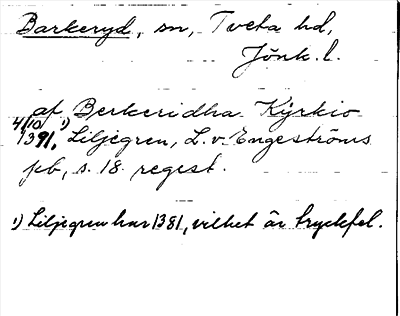 Barkeryd, sn, Tveta hd,
Jönk. l.
af Berkeridha Kyrkio
4/10 1)
1391, Liljegren, L. v. Engeströms
pb, s. 18 regest.
1) Liljegren har 1381, vilket är tryckfel.